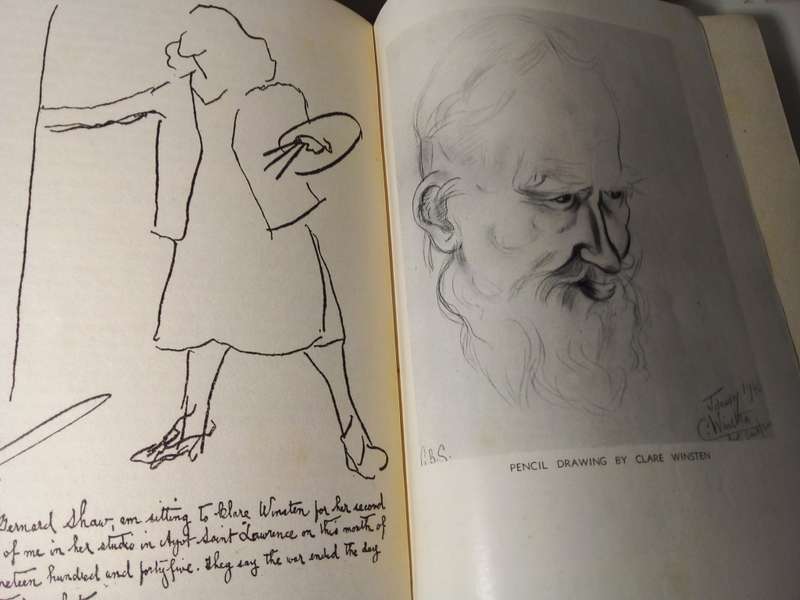 Bernard Shaw, am sitting to Clare Winsten for her second
of me in her studio in Ayot Saint Lawrence on this month of
nineteen hundred and forty-five. They say the war ended the day
G.B.S.
C. Winsten
PENCIL DRAWING BY CLARE WINSTEN